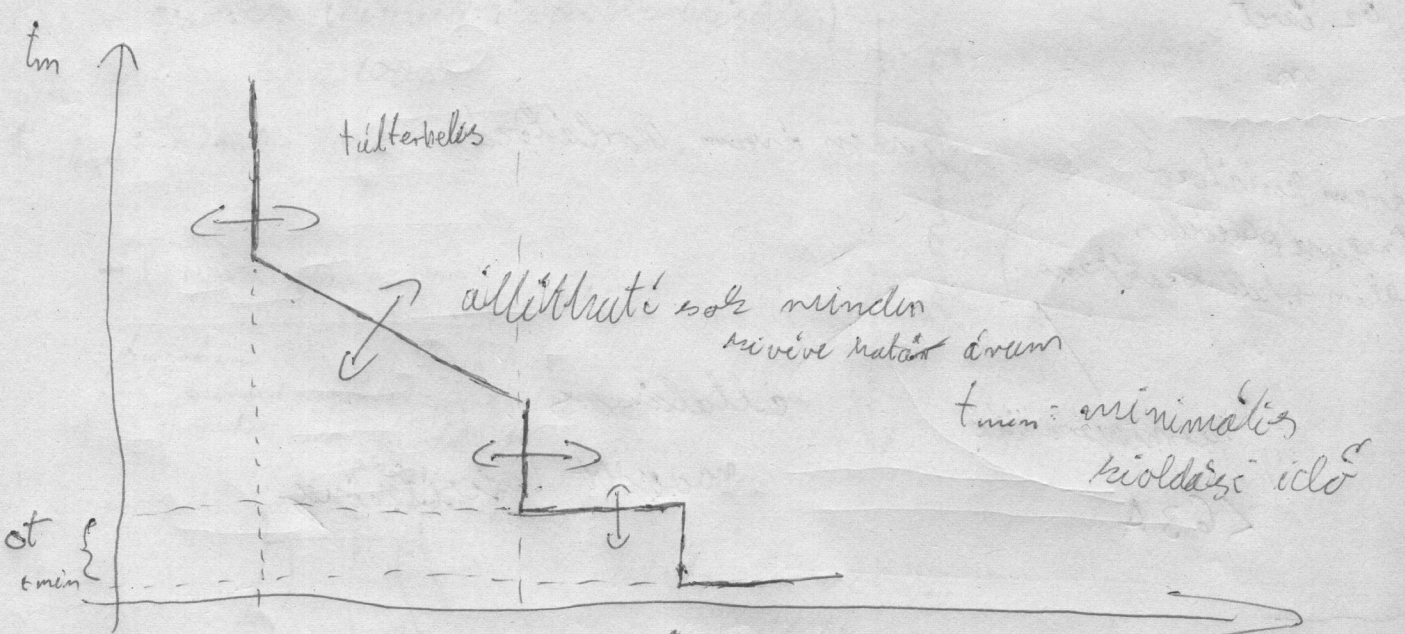 tm
túlterhelés
állítható sok minden
kivéve határ áram
tmin: minimális
kioldási idő
Δt
tmin